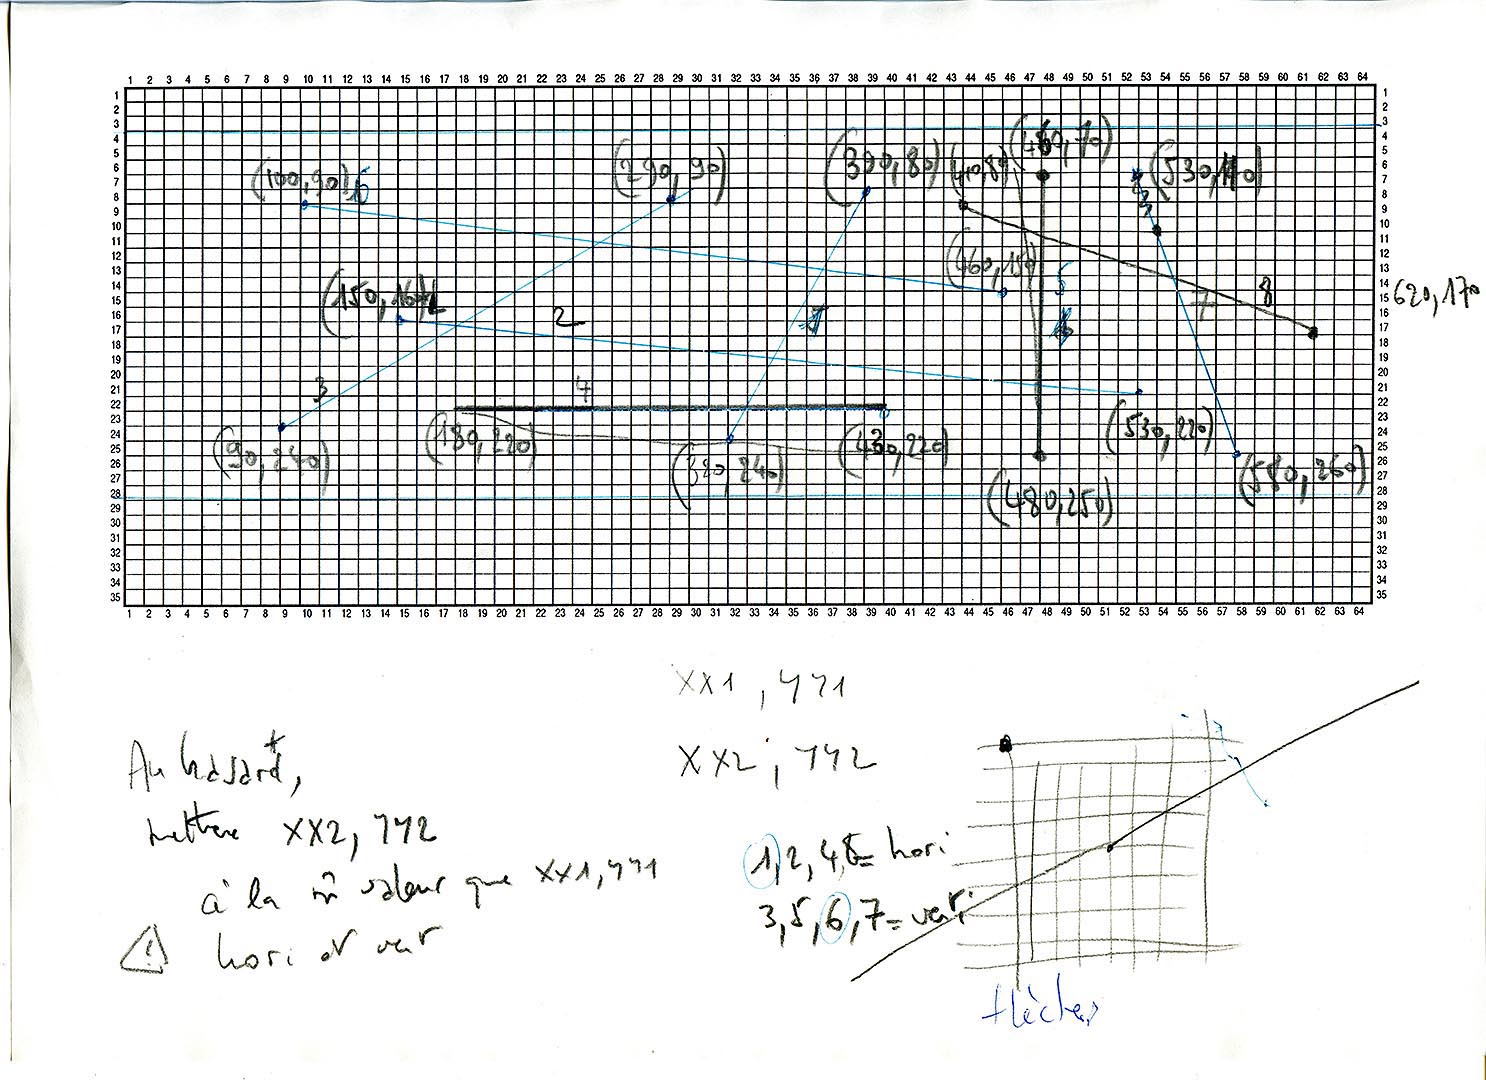 1 2 3 4 5 6 7 8 9 10 11 12 13 14 15 16 17 18 19 20 21 22 23 24 25 26 27 28 29 30 31 32 33 34 35 36 37 38 39 40 41 42 43 44 45 46 47 48 49 50 51 52 53 54 55 56 57 58 59 60 61 62 63 64
1 1
2 2
3 3
4 4
5 5
6 6
7 7
8 8
9 9
10 10
11 11
12 12
13 13
14 14
15 15
16 16
17 17
18 18
19 19
20 20
21 21
22 22
23 23
24 24
25 25
26 26
27 27
28 28
29 29
30 30
31 31
32 32
33 33
34 34
35 35
1 2 3 4 5 6 7 8 9 10 11 12 13 14 15 16 17 18 19 20 21 22 23 24 25 26 27 28 29 30 31 32 33 34 35 36 37 38 39 40 41 42 43 44 45 46 47 48 49 50 51 52 53 54 55 56 57 58 59 60 61 62 63 64
(100,90)
(290,90)
(390,80)
2
3
4
5
7
8
620,170
(90,240)
(180,220)
(320,240)
(530,220)
(580,260)
(480,250)
xx1, yy1
xx2, yy2
Au hasard,
mettre xx2, yy2
à la m̂ valeur que xx1, yy1
hori et ver
1,2,4,8= hori
3,5,6,7= vert
flèches